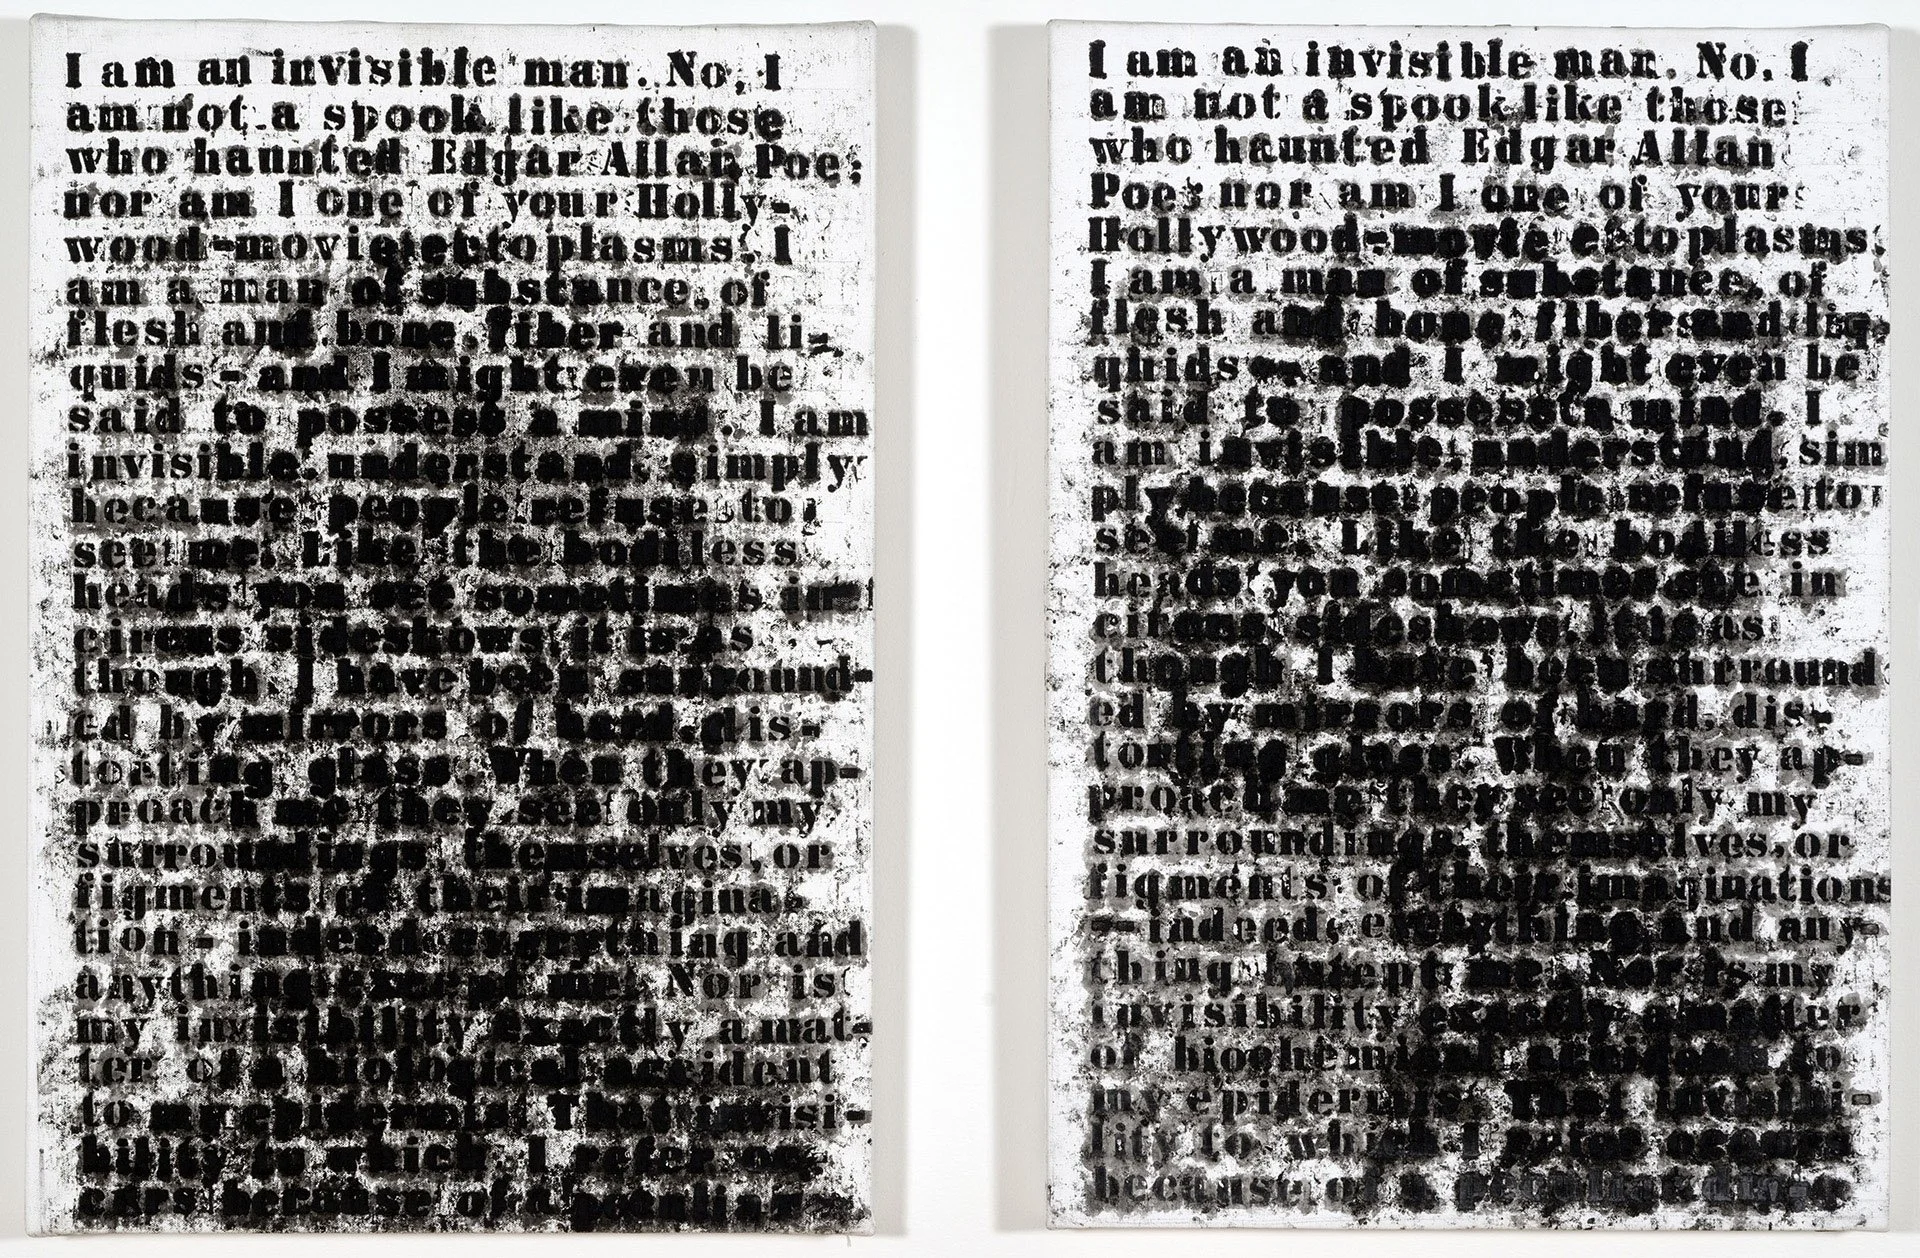 I am an invisible man. No, I
am not a spook like those
who haunted Edgar Allan Poe;
nor am I one of your Holly-
wood-movie ectoplasms. I
am a man of substance, of
flesh and bone, fiber and li-
quids - and I might even be
said to possess a mind. I am
invisible, understand, simply
because people refuse to
see me. Like the bodiless
heads you see sometimes in
circus sideshows, it is as
though I have been surround-
ed by mirrors of hard, dis-
torting glass. When they ap-
proach me they see only my
surroundings, themselves, or
figments of their imagina-
tion - indeed, everything and
anything except me. Nor is
my invisibility exactly a mat-
ter of a biological accident
to my epidermis. That invisi-
bility to which I refer oc-
curs because of a peculiar
I am an invisible man. No, I
am not a spook like those
who haunted Edgar Allan
Poe; nor am I one of your
Hollywood-movie ectoplasms.
I am a man of substance, of
flesh and bone, fiber and liq-
quids - and I might even be
said to possess a mind. I
am invisible, understand, sim
ply because people refuse to
see me. Like the bodiless
heads you sometimes see in
circus sideshows, it is as
though I have been surround
ed by mirrors of hard, dis-
torting glass. When they ap-
proach me they see only my
surroundings, themselves, or
figments of their imaginations
- indeed, everything and any-
thing except me. Nor is my
invisibility exactly a matter
of biochemical accident to
my epidermis. That invisibi-
lity to which I refer occurs
because of a peculiar dis-